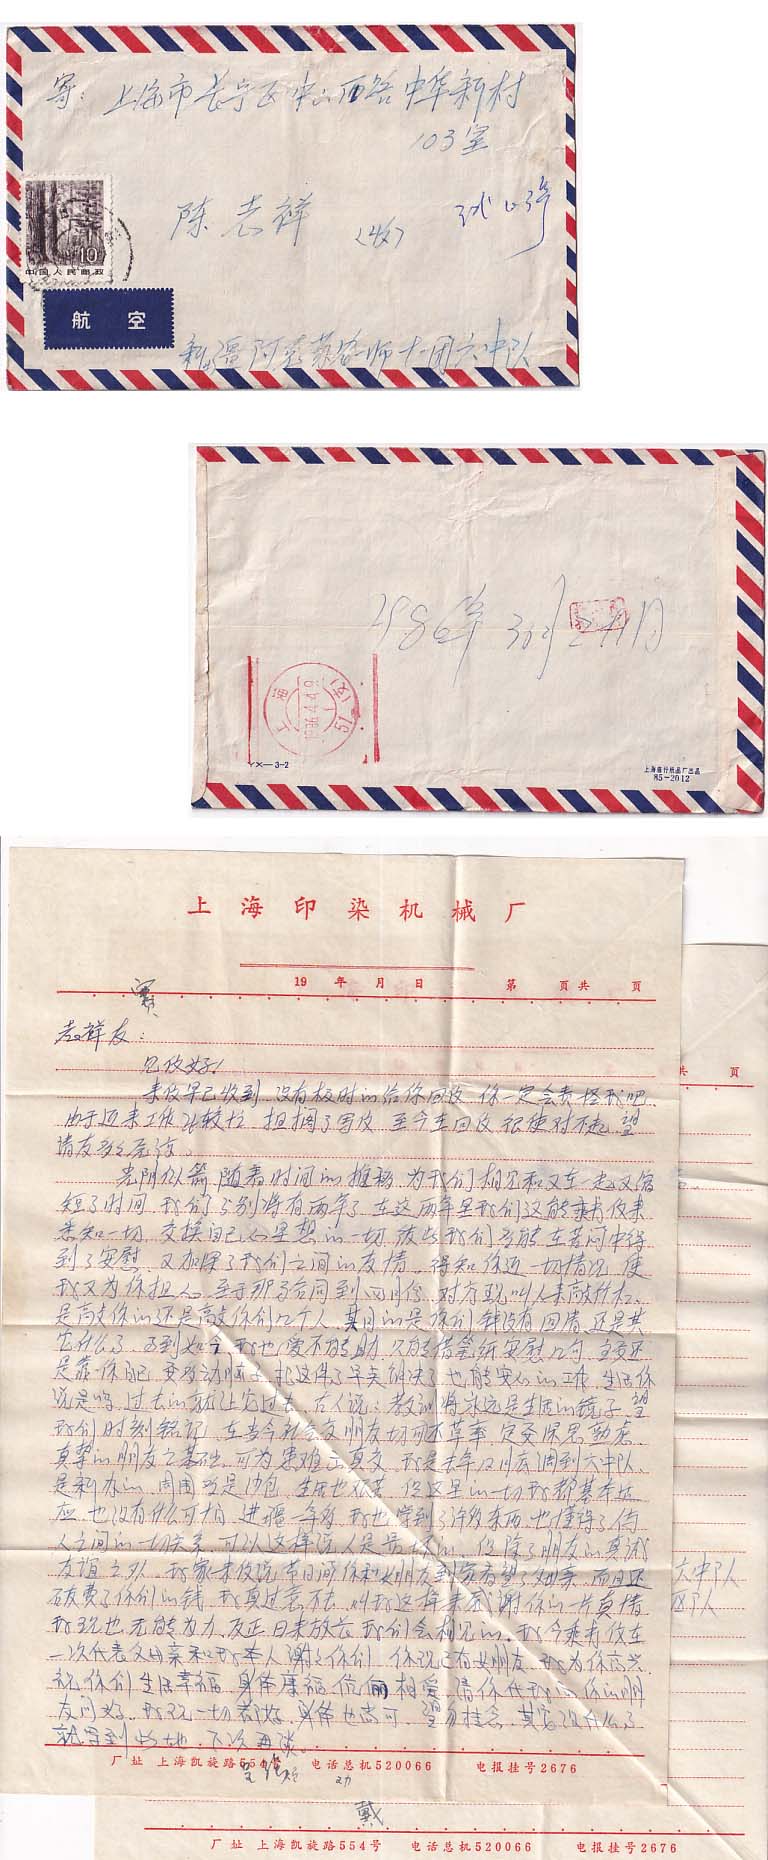 寄：上海市长宁区中山西路中华新村
103室
陈志祥（收）
中国人民邮政
10
航空
新疆阿克苏农一师十一团六中队
1986年3月
上海
1986.4.4.9
51 (支)
YX—3-2
85-2012
上海印染机械厂
19 年 月 日 第 页共 页
志祥友：
见启好！
来信早已收到，没有及时的给你回信，你一定会责怪我吧，
由于近来工作比较忙，担搁了写信，至今在回信，很使对不起，望
请友多多原谅。
光阴似箭，随着时间的推移，为我们相见和又在一起又缩
短了时间，我们分别将有两年了，在这两年里我们只能乘书信来
悉知一切，交换自己的思想的一切，彼此我们都能在苦闷中得
到了安慰，又加深了我们之间的友情。得知你近一切情况，使
我又为你担心，至于那合同到四月份，对方现叫人来敲竹杠，
是敲你的还是敲你们几个人，其目的是你们钱没有回清，还是其
它什么了，事到如今我也爱不能助，只能借笔纸安慰几句，主要还
是靠你自己，要多动脑子，把这件事早失解决了，也能安心的工作，生活，你
说是吗，过去的就让它过去，古人说：教训将永远是生活的镜子，望
我们时刻铭记，在当今社会交朋友切可不草率，定要深思熟虑，
真挚的朋友之基础，可为患难之真交，我是去年12月去调到六中队，
是新办的，周围都是沙包，生活也艰苦，但这里的一切我都基本适
应，也没有什么可怕，进疆一年多，我也学到了许多东西，也懂得了人与
人之间的一切关系，可以这样说人是最坏的，但除了朋友的真诚
友谊之外，我家来信说节日里你和女朋友到家看望了双亲，而且还
破费了你们的钱，我真过意不去，叫我这个年来感谢你的一片真情，
我现也无能为力，反正日来放长，我们会相见的，我今乘书信在
一次代表父母亲和我本人谢谢你们，你现已有女朋友，我为你高兴，
祝你们生活幸福，身体康福，俩相爱，请你代我向你的朋
友问好，我现一切都好，身体也尚可，望勿挂念，其它没什么了
就写到此地，下次再谈。
厂址 上海凯旋路554号 电话总机520066 电报挂号2676
共 页
六中队
戴
厂址 上海凯旋路554号 电话总机520066 电报挂号2676